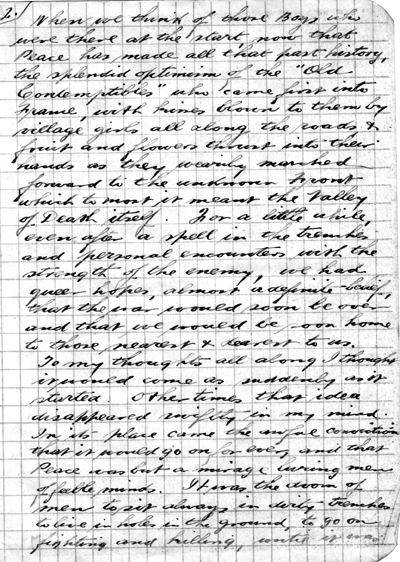 2.
When we think of those Boys who
were there at the start now that
Peace has made all that past history,
the splendid optimism of the "Old
Contemptibles" who came first into
France, with kisses blown to them by
village girls all along the roads &
fruit and flowers thrust into their
hands as they wearily marched
forward to the unknown Front
which to most it meant the Valley
of Death itself. For a little while,
even after a spell in the trenches
and personal encounters with the
strength of the enemy, we had
queer hopes, almost a definite belief,
that the war would soon be over
and that we would be soon home
to those nearest & dearest to us.
To my thoughts all along I thought
it would come as suddenly as it
started. Other times that idea
disappeared swiftly in my mind.
In its place came the awful conviction
that it would go on for ever, and that
Peace was but a mirage luring men
of feeble minds. It was the doom of
men to sit always in dirty trenches
to live in holes in the ground, to go on
fighting and killing, until it was